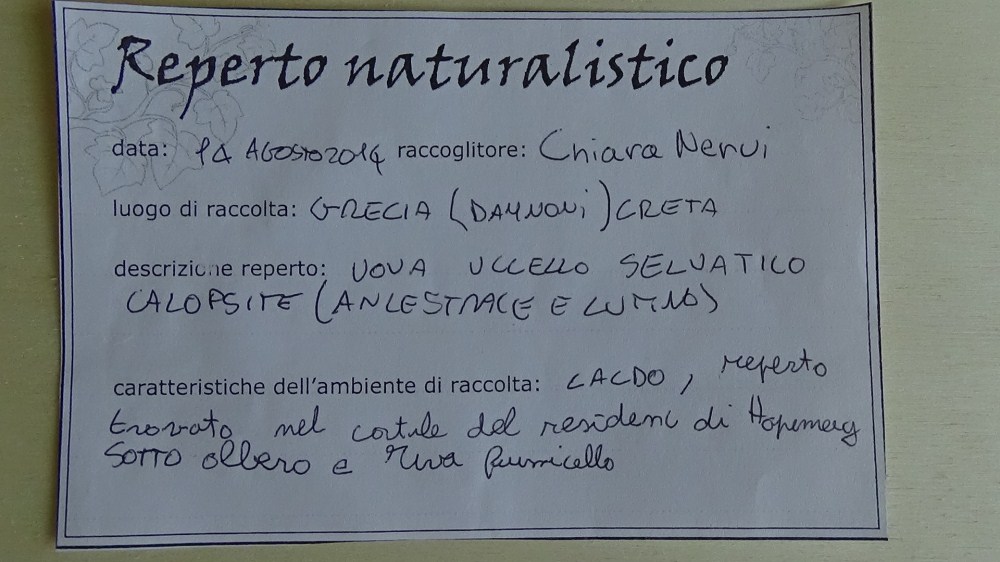 Reperto naturalistico
data: 14 AGOSTO 2014 raccoglitore: Chiara Nervi
luogo di raccolta: GRECIA (DAMNONI) CRETA
descrizione reperto: UOVA UCCELLO SELVATICO
CALOPSITE (ANCESTRALE E LUTINO)
caratteristiche dell'ambiente di raccolta: CALDO, reperto
trovato nel cortile del residenc di
SOTTO albero e riva fiumicello